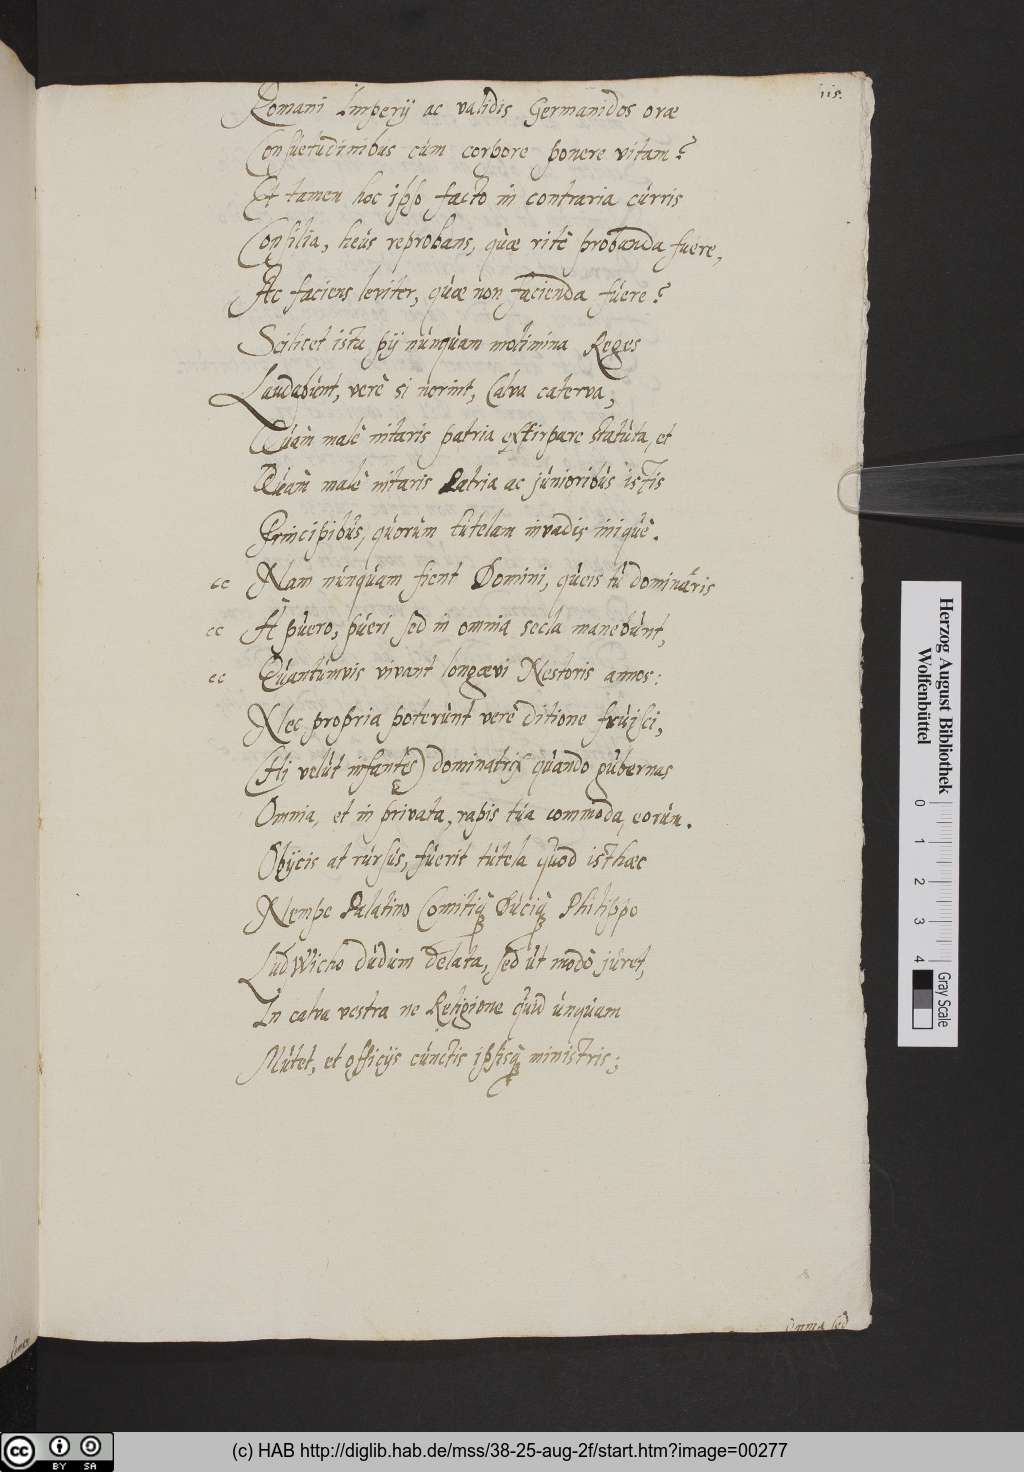 115.
Romani Imperij ac validis Germanidos oræ
Consuetudinibus cum corpore ponere vitam?
Et tamen hoc ipso facto in contraria curris
Consilia, heus reprobans, quæ ritè probanda fuere,
Ac faciens leviter, quæ non facienda fuere?
Scilicet ista pij nunquam molimina Reges
Laudabunt, verè si norint, Calva caterva,
Quàm malè nitaris patria exstirpare statuta, et
Quàm malè nitaris Patria ac junioribus istis
Principibus, quorum tutelam invadis iniquè.
cc Nam nunquam fient Domini, queis tu dominaris
cc At puero, pueri sed in omnia secla manebunt,
cc Quantumvis vivant longævi Nestoris annos:
Nec propria poterunt verè ditione fruisci,
(Hi velut infantes) dominatrix quando gubernas
Omnia, et in privata, rapis tua commoda, eorum.
Obijcis at rursus, fuerit tutela quod isthæc
Nempe Palatino Comitiq Duciq Philippo
LudWicho dudum delata, sed ut modò juret,
In calva vestra ne Religione quid unquam
Mutet, et officijs cunctis ipsisq ministris;
Omnia sed
Herzog August Bibliothek
Wolfenbüttel
0 1 2 3 4
Gray Scale
cc BY SA
(c) HAB http://diglib.hab.de/mss/38-25-aug-2f/start.htm?image=00277